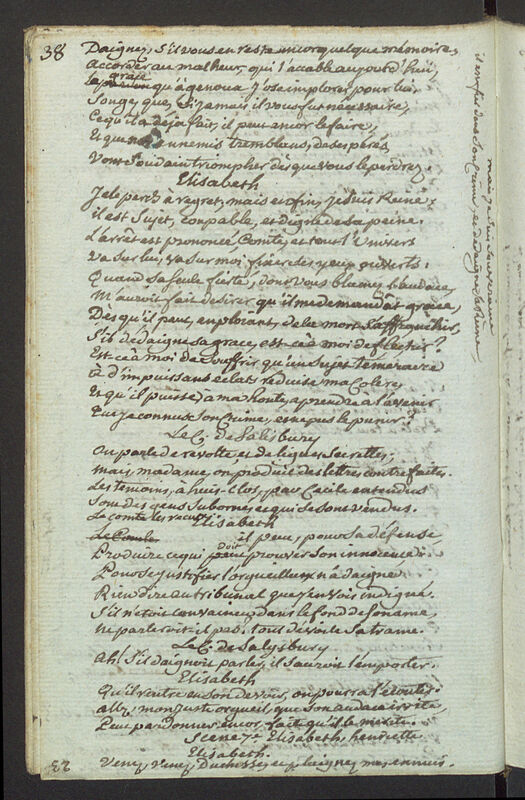 38
Daignez, s'il vous en reste encor quelque mémoire,
Accorder au malheur, qui l'accable aujourd'hui,
La grace qu'à genoux j'ose implorer pour lui.
Songez que, si jamais il vous fut nécessaire,
Ce qu'il a déja fait, il peut encor le faire,
Et que nos ennemis tremblans, désespérés,
Vont soudain triompher dès que vous le perdrez.
Elisabeth
Je le perds à regret, mais enfin, je suis Reine;
il est sujet, coupable, et digne de sa peine.
L'arrêt est prononcé, Comte, et tout l'univers
Va sur lui, va sur moi fixer des yeux ouverts.
Quand sa seule fierté, dont vous blamez l'audace,
M'auroit fait desirer qu'il me demandât grace,
Dès qu'il peut, en plorant, de la mort s'affranchir,
S'il dédaigne sa grace, est-ce à moi de flechir?
Est-ce à moi de souffrir qu'un sujet temeraire
à d'impuissans eclats réduise ma colere,
Et qu'il puisse à ma honte, aprendre à l'avenir
Que je connus son crime, et n'ai pus le punir?
Le C. de Salisbury
On parle de revolte et de ligues secrettes;
mais, madame, on produit des lettres contrefaites.
Les temoins, à huis-clos, par Cecile entendus
Sont des gens subornés et qui se sont vendus.
Le comte les recuse
Elisabeth
il peut, pour sa défense,
Produire ce qui doit prouver son innocence.
Pour se justifier l'orgueilleux n'a daigné
Rien dire au tribunal que j'en vois indigné.
S'il n'étoit convaincu, dans le fond de son ame,
ne parleroit-il pas, tout dévoile sa trame.
Le C. de Salysbury
Ah! s'il daignoit parler, il sauroit l'emporter.
Elisabeth
Qu'il rentre en son devoir, on pourra l'écouter.
allez, mon juste orgueil que son audace irrite,
Peut pardonner encor, fait qu'il le mérite.
Scene 7e Elisabeth, henriette
Elisabeth.
Venez, venez, Duchesse, et plaignez mes ennuis.